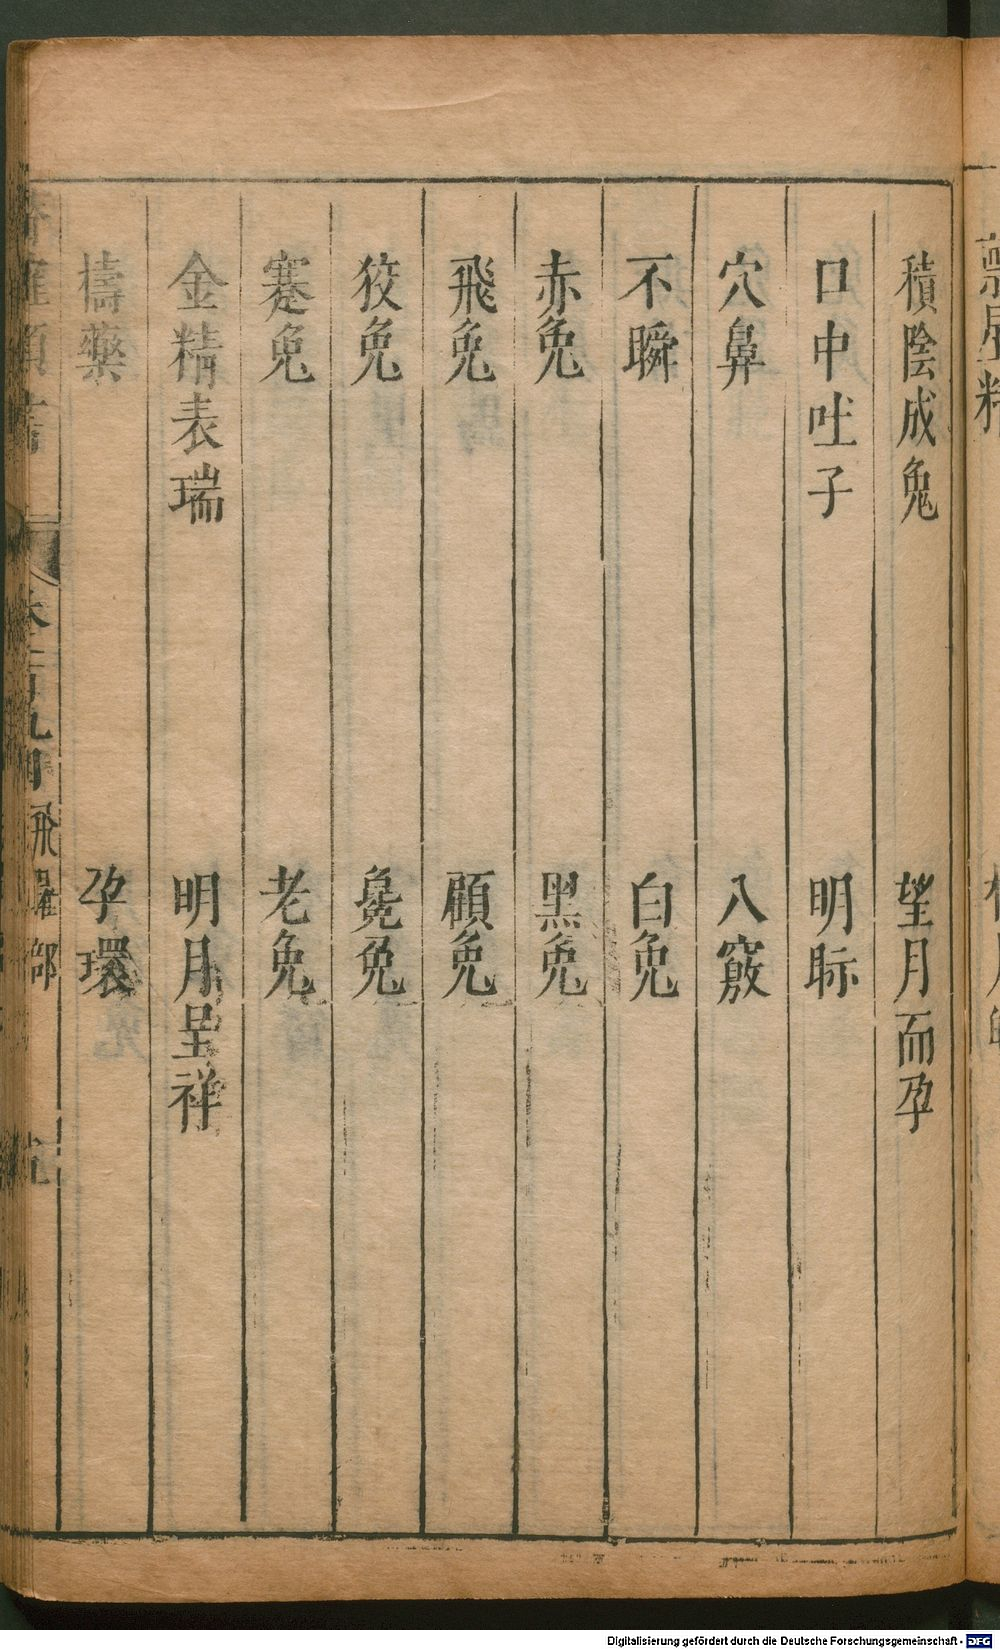 積陰成兔 望月而孕
口中吐子 明眎
穴鼻 八竅
不瞬 白兔
赤兔 黑兔
飛兔 顧兔
狡兔 毚兔
蹇兔 老兔
金精表瑞 明月呈祥
擣藥 孕環
飛躍部
Digitalisierung gefördert durch die Deutsche Forschungsgemeinschaft - DFG